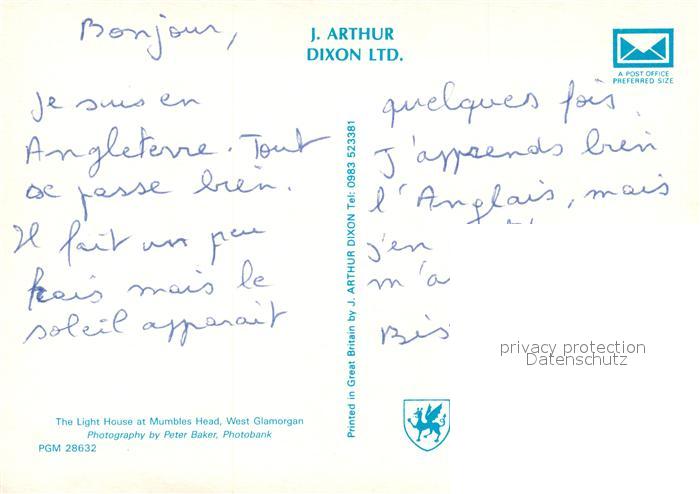 Bonjour,
J. ARTHUR
DIXON LTD.
A POST OFFICE
PREFERRED SIZE
Je suis en
Angleterre. Tout
se passe bien.
Il fait un peu
frais mais le
soleil apparait
quelques fois.
J'apprends bien
l'Anglais, mais
j'en
m'a
Bis
privacy protection
Datenschutz
Printed in Great Britain by J. ARTHUR DIXON Tel: 0983 523381
The Light House at Mumbles Head, West Glamorgan
Photography by Peter Baker, Photobank
PGM 28632